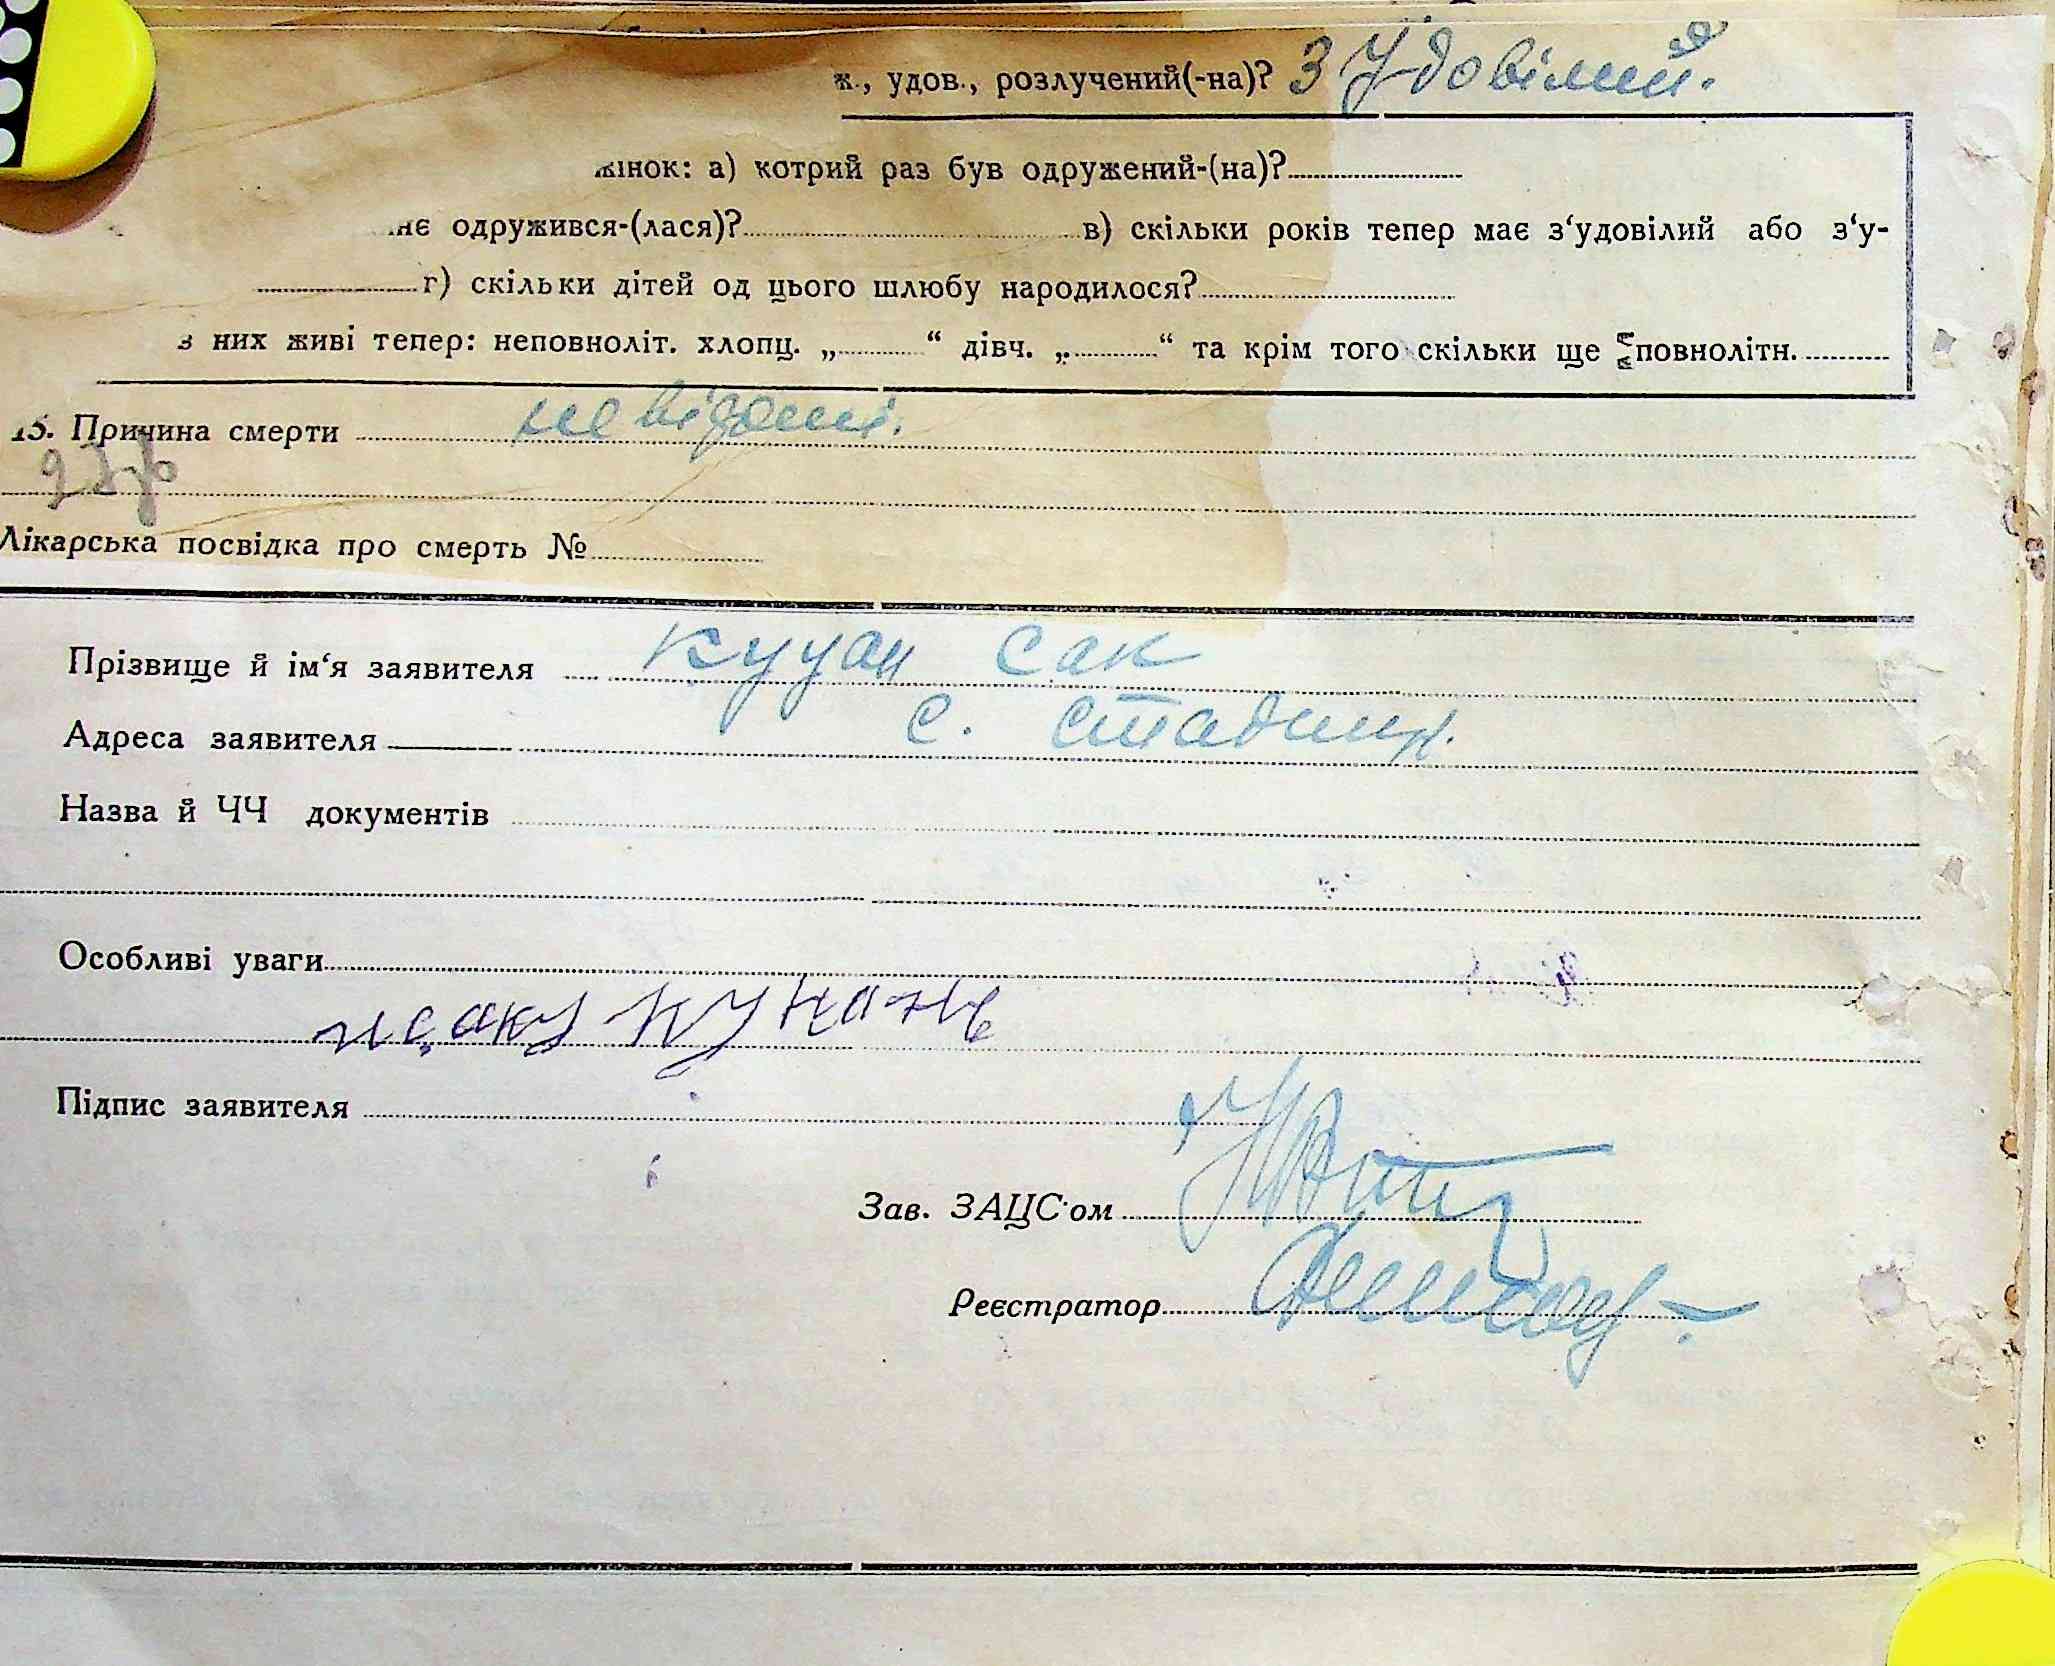 ж., удов., розлучений(-на)? З Удовілий.
жінок: а) котрий раз був одружений-(на)?
не одружився-(лася)? в) скільки років тепер має з‘удовілий або з‘у-
г) скільки дітей од цього шлюбу народилося?
з них живі тепер: неповноліт. хлопц. „ “ дівч. „ “ та крім того скільки ще повнолітн.
15. Причина смерти невідомі.
Лікарська посвідка про смерть №
Прізвище й ім‘я заявителя Сак
Адреса заявителя с.
Назва й ЧЧ документів
Особливі уваги
Підпис заявителя
Зав. ЗАЦС‘ом
Реєстратор